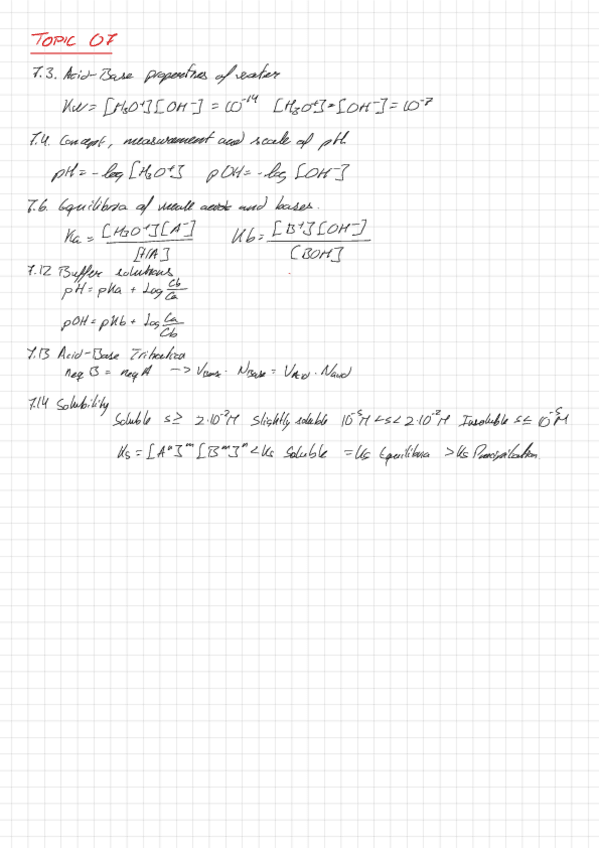 TOPIC 07
7.3. Acid-Base properties of water
Kw = [H₃O⁺][OH⁻] = 10⁻¹⁴ [H₃O⁺] = [OH⁻] = 10⁻⁷
7.4. Concept, measurement and scale of pH
pH = -log [H₃O⁺] pOH = -log [OH⁻]
7.6. Equilibria of weak acids and bases.
Ka = [H₃O⁺][A⁻] / [HA] Kb = [B⁺][OH⁻] / [BOH]
7.12 Buffer solutions
pH = pKa + Log Cb/Ca
pOH = pKb + Log Ca/Cb
7.13 Acid-Base
neq B = neq A -> VBase · NBase = VAcid · NAcid
7.14 Solubility
Soluble s ≥ 2·10⁻²M Slightly soluble 10⁻⁵M < s < 2·10⁻²M Insoluble s ≤ 10⁻⁵M
Ks = [Aⁿ]ᵐ [Bᵐ]ⁿ < Ks Soluble = Ks Equilibria > Ks Precipitation